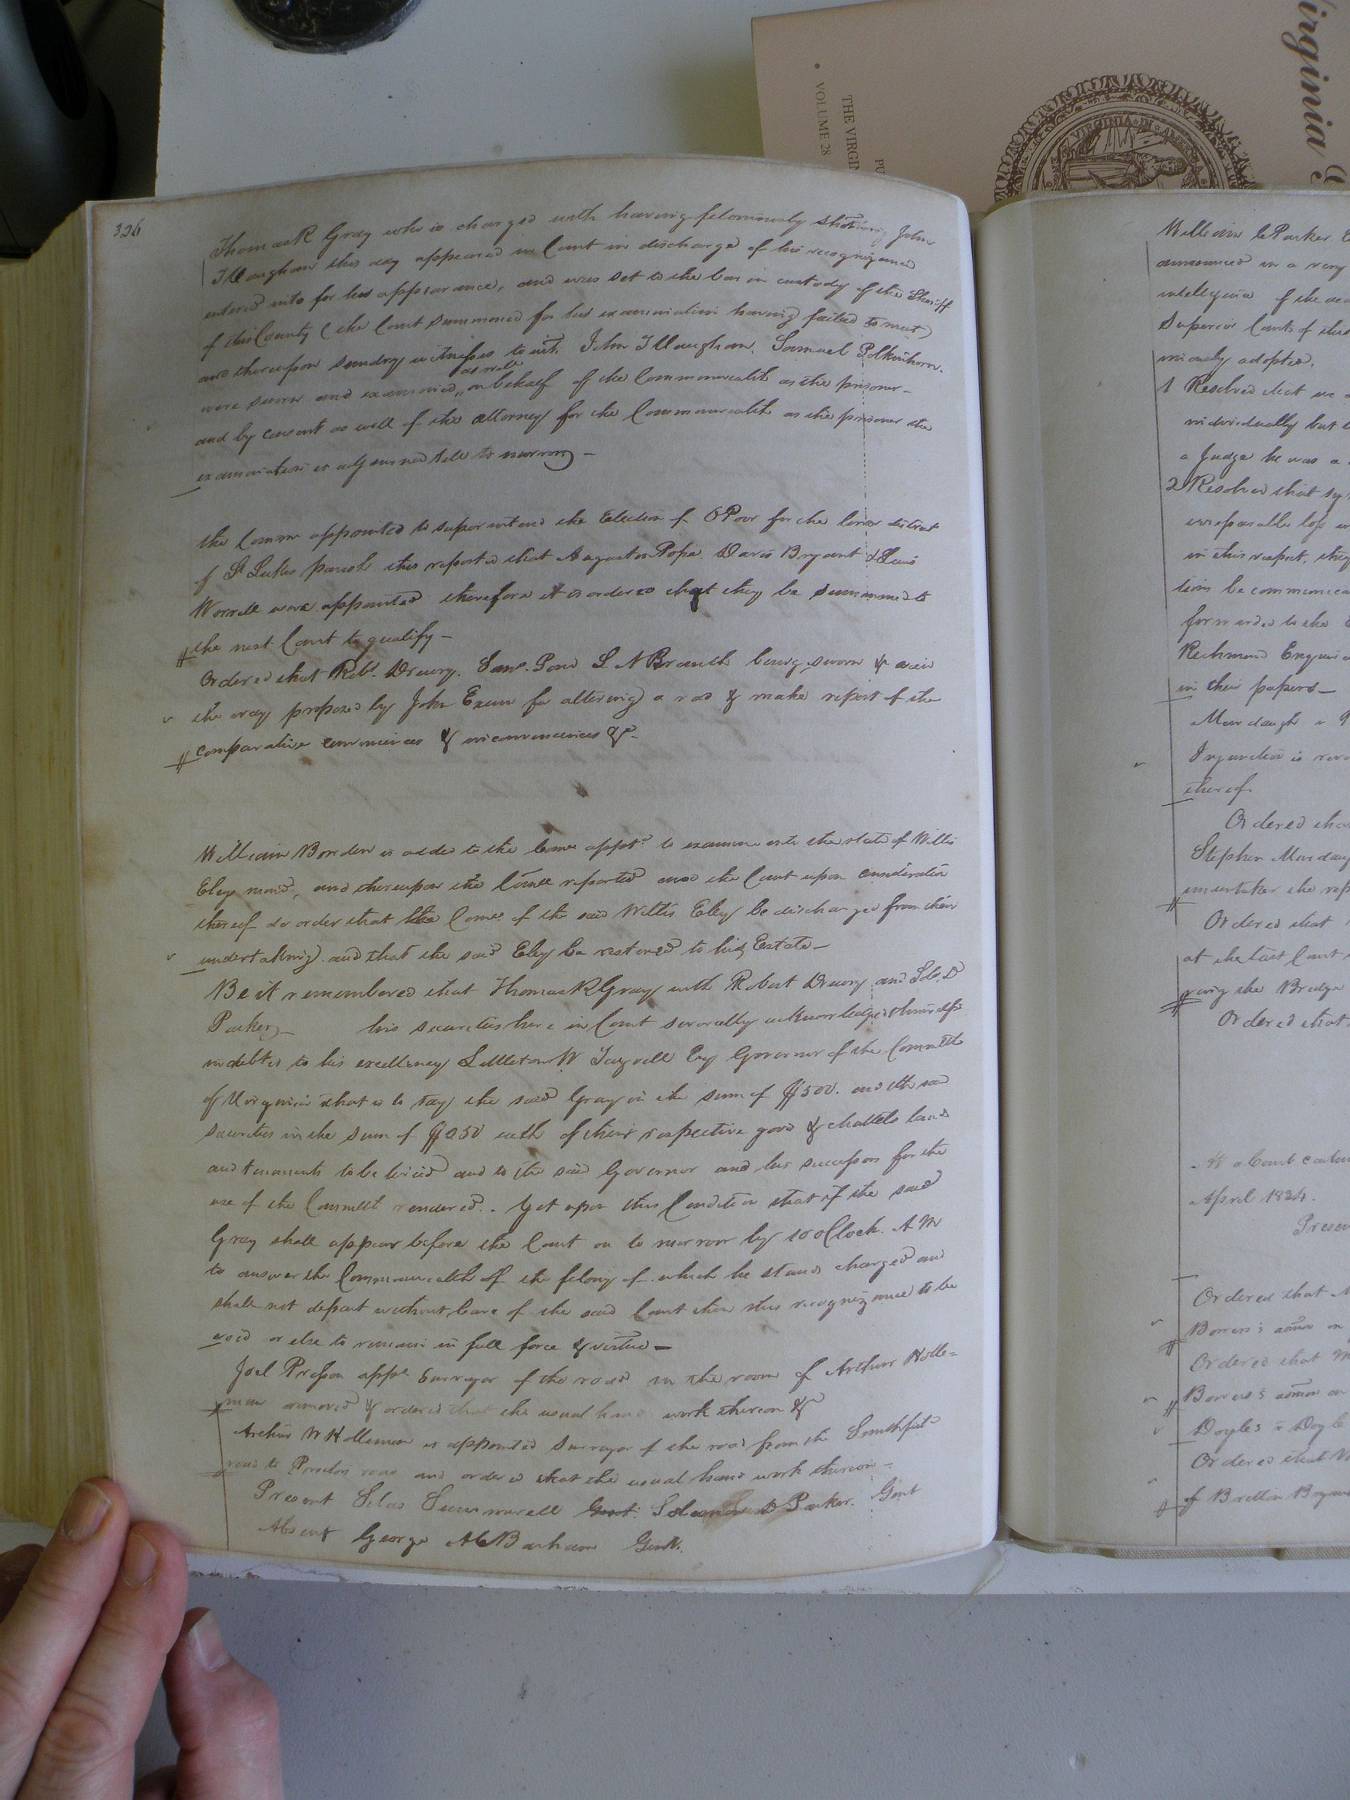 326
Thomas R Gray who is charged with having feloniously shooting John
T Vaughan this day appeared in Court in discharge of his recognizance
entered into for his appearance, and was set to the bar in custody of the Sheriff
of this County (the Court summoned for his examination having failed to meet)
and thereupon sundry witnesses to wit, John T Vaughan, Samuel Polkinhorn
were sworn and examined, as well on behalf of the Commonwealth as the prisoner—
and by consent as well of the attorney for the Commonwealth as the prisoner the
examination is adjourned till to morrow—
the Comrs appointed to superintend the Election of OPoor for the lower district
of St Lukes parish this reported that Augustin Pope Davis Bryant & Lewis
Worrell were appointed therefore it is ordered that they be summoned to
the next Court to qualify—
Ordered that Rob. Drewry, Saml. Pond S N Branch being sworn & view
the way proposed by John Exum for altering a road & make report of the
comparative conveniences & inconveniences &c.
William Borden is added to the Comrs appt. to examine into the state of Willis
Eleys mind, and thereupon the Comee reported and the Court upon consideration
thereof do order that the Come. of the said Willis Eley be discharged from their
undertaking and that the said Eley be restored to his Estate—
Be it remembered that Thomas R Gray with Robert Drewry and Sol. D
Parker— his securities here in Court severally acknowledged themselves
indebted to his excellency Littleton W Tazwell Esq Governor of the Commlth
of Virginia that is to say the said Gray in the sum of $500. and the said
securities in the sum of $250 each of their respective good & chattels lands
and tenements to be levied and to the said Governor and his successors for the
use of the Commlt rendered. Yet upon this Condition that if the said
Gray shall appear before the Court on to morrow by 10 oClock A M
to answer the Commonwealth of the felony of which he stands charged and
shall not depart without leave of the said Court then this recognizance to be
void or else to remain in full force & virtue—
Joel Presson appt Surveyor of the road in the room of Arthur Holle=
man removed & ordered that the usual hand work thereon &
Arthur W Holleman is appointed Surveyor of the road from the Smithfield
road to Proctors road and ordered that the usual hand work thereon—
Present Silas Summerell Gent. Solomon D Parker. Gent
Absent George A W Barham Gent.
William C Parker E
announced in a very
intelligence of the dea
Superior Courts of this
imously adopted.
1 Resolved that we
individually but
a Judge he was a
2 Resolved that by
irreparable loss
in this respect, they
tions be communica
forwarded to the
Richmond Enquir
in their papers—
Injunction is
thereof
Ordered tha
Stephen
undertaker the rep
Ordered that
at the last Court
ring the Bridge
Ordered that
At a Court contin
April 1834.
Prese
Ordered that
Ordered that
Doyles v Doyle
Ordered that
of Britton Bryan
Virginia
THE VIRGIN
VOLUME 28
PU
VIRGINIA